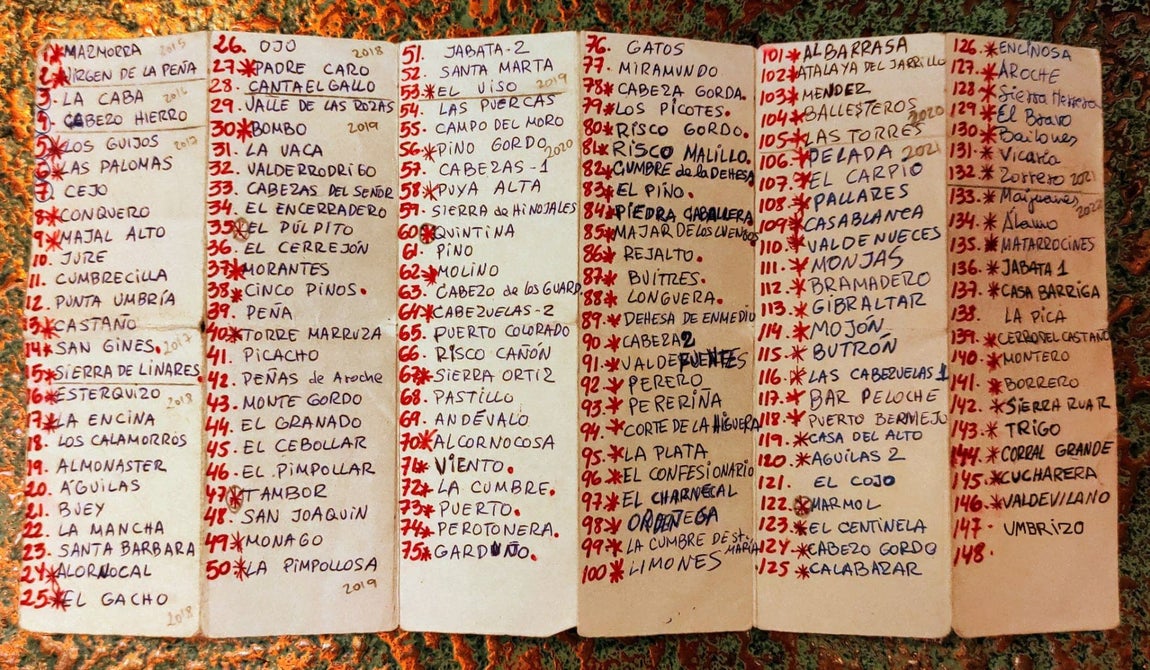 1*MAZMORRA 2015
2*VIRGEN DE LA PEÑA
3. LA CABA 2016
4. CABEZO HIERRO
5*LOS GUIJOS 2017
6*LAS PALOMAS
7 CEJO
8*CONQUERO
9*MAJAL ALTO
10. JURE
11. CUMBRECILLA
12. PUNTA UMBRÍA
13*CASTAÑO
14*SAN GINES. 2017
15*SIERRA DE LINARES
16*ESTERQUIZO 2018
17*LA ENCINA
18. LOS CALAMORROS
19. ALMONASTER
20. AGUILAS
21. BUEY
22. LA MANCHA
23. SANTA BARBARA
24*ALORNOCAL
25*EL GACHO
2018
26. OJO 2018
27*PADRE CARO
28. CANTAELGALLO
29. VALLE DE LAS ROZAS
30*BOMBO 2019
31. LA VACA
32. VALDERRODRIGO
33. CABEZAS DEL SEÑOR
34. EL ENCERRADERO
35*EL PÚLPITO
36. EL CERREJÓN
37*MORANTES
38*CINCO PINOS.
39. PEÑA
40*TORRE MARRUZA
41. PICACHO
42. PEÑAS de Aroche
43. MONTE GORDO
44. EL GRANADO
45. EL CEBOLLAR
46. EL PIMPOLLAR
47*TAMBOR
48. SAN JOAQUIN
49*MONAGO
50*LA PIMPOLLOSA
2019
51. JABATA-2
52. SANTA MARTA
53.*EL VISO 2019
54. LAS PUERCAS
55. CAMPO DEL MORO
56.*PINO GORDO 2020
57. CABEZAS-1
58.*PUYA ALTA
59. SIERRA de HINOJALES
60*QUINTINA
61. PINO
62*MOLINO
63. CABEZO de los GUARD
64*CABEZUELAS-2
65. PUERTO COLORADO
66. RISCO CAÑÓN
67*SIERRA ORTIZ
68. PASTILLO
69. ANDÉVALO
70*ALCORNOCOSA
71*VIENTO.
72*LA CUMBRE.
73*PUERTO.
74*PEROTONERA.
75*GARDUÑO.
76. GATOS
77. MIRAMUNDO
78*CABEZA GORDA.
79*LOS PICOTES.
80*RISCO GORDO.
81*RISCO MALILLO.
82*CUMBRE de la DEHESA
83*EL PINO.
84*PIEDRA CABALLERA
85*MAJAR DE LOS LUENGOS
86*REJALTO.
87*BUITRES.
88*LONGUERA.
89.*DEHESA DE ENMEDIO
90*CABEZA 2
91.*VALDEFUENTES
92.*PERERO
93.*PERERIÑA
94.*CORTE DE LA HIGUERA
95.*LA PLATA
96*EL CONFESIONARIO
97*EL CHARNECAL
98*ORDEÑEGA
99*LA CUMBRE DE Sta. MARIA
100*LIMONES
101*ALBARRASA
102*ATALAYA DEL JARRILLO
103*MENDER
104*BALLESTEROS 2020
105*LAS TORRES
106*PELADA 2021
107.*EL CARPIO
108.*PALLARES
109*CASABLANCA
110*VALDENUECES
111.*MONJAS
112.*BRAMADERO
113*GIBRALTAR
114.*MOJÓN
115.*BUTRÓN
116.*LAS CABEZUELAS 1
117.*BAR PELOCHE
118*PUERTO BERMEJO
119.*CASA DEL ALTO
120.*AGUILAS 2
121. EL COJO
122.*MARMOL
123.*EL CENTINELA
124.*CABEZO GORDO
125*CALABAZAR
126.*ENCINOSA
127.*AROCHE
128.*Sierra Herrera
129*El Bravo
130*Bailones
131.*Vicaría
132.*Zorrero 2021
133.*Majuanes 2022
134.*Álamo
135.*MATARROCINES
136.*JABATA 1
137.*CASA BARRIGA
138. LA PICA
139.*CERRO DEL CASTAÑO
140.*MONTERO
141.*BORRERO
142.*SIERRA RUAR
143.*TRIGO
144.*CORRAL GRANDE
145*CUCHARERA
146*VALDEVILANO
147. UMBRIZO
148.